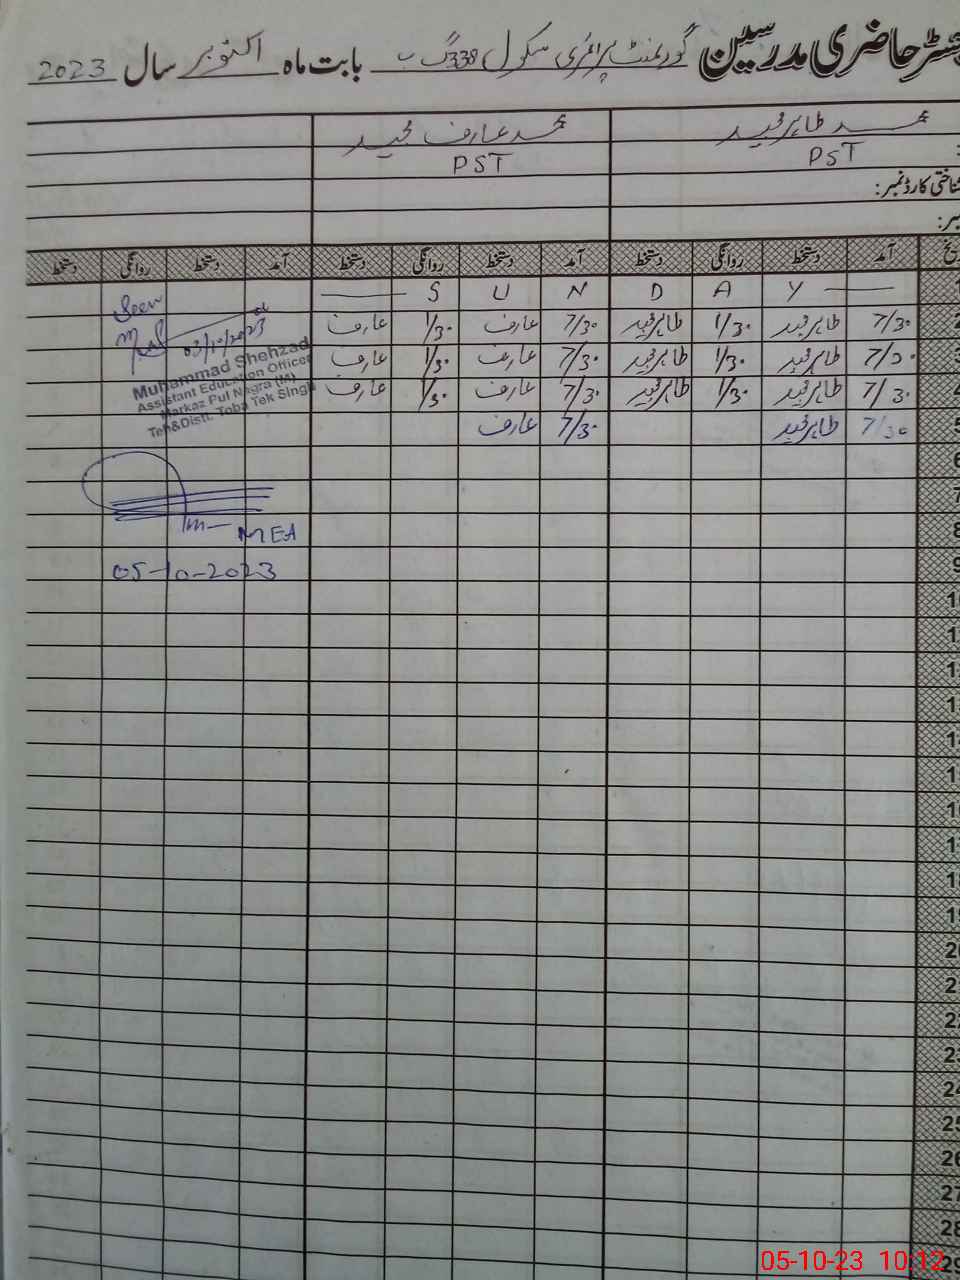 رجسٹر حاضری مدرسین گورنمنٹ پرائمری سکول 338 گ ب بابت ماہ اکتوبر سال 2023
محمد طاہر مجید محمد عارف مجید
PST PST
شناختی کارڈ نمبر:
نمبر:
تاریخ آمد دستخط روانگی دستخط آمد دستخط روانگی دستخط آمد دستخط روانگی دستخط
1 S U N D A Y
2 7/30 طاہر مجید 1/30 طاہر مجید 7/30 عارف 1/30 عارف
3 7/30 طاہر مجید 1/30 طاہر مجید 7/30 عارف 1/30 عارف
4 7/30 طاہر مجید 1/30 طاہر مجید 7/30 عارف 1/30 عارف
5 7/30 طاہر مجید 7/30 عارف
Seen
03/10/2023
Muhammad Shehzad
Assistant Education Officer
Markaz Pul Nagra (M)
Teh&Distt. Toba Tek Singh
6
7
8
MEA
9
05-10-2023
10
11
12
13
14
15
16
17
18
19
20
21
22
23
24
25
26
27
28
29
05-10-23 10:12